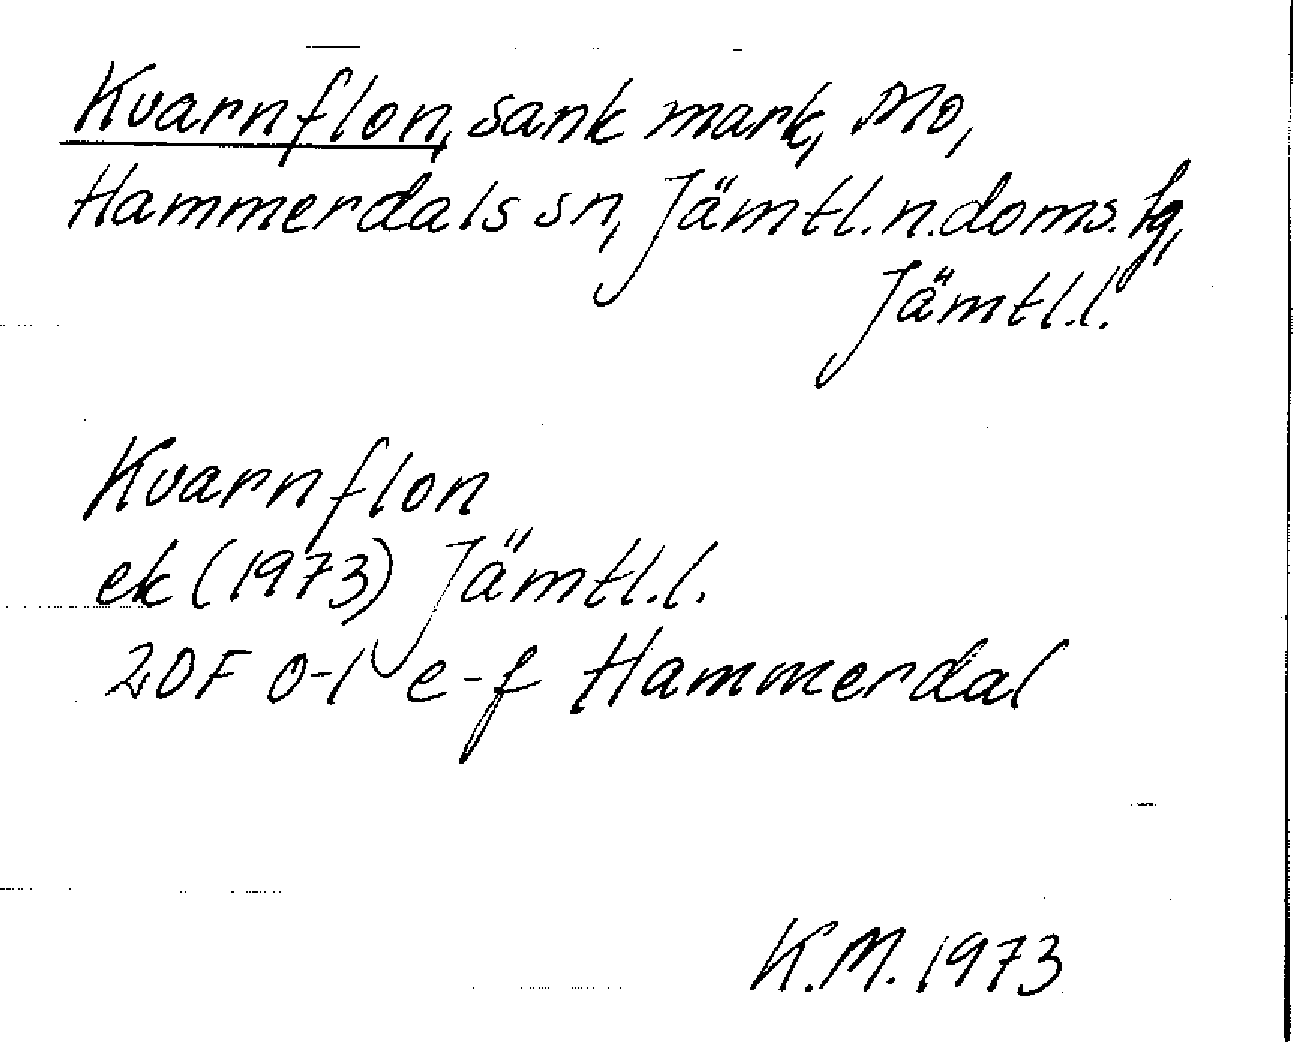 Kvarnflon, sank mark, Mo,
Hammerdals sn, Jämtl.n.doms.hg,
Jämtl.l.
Kvarnflon
ek (1973) Jämtl.l.
20F 0-1 e-f Hammerdal
K.M. 1973